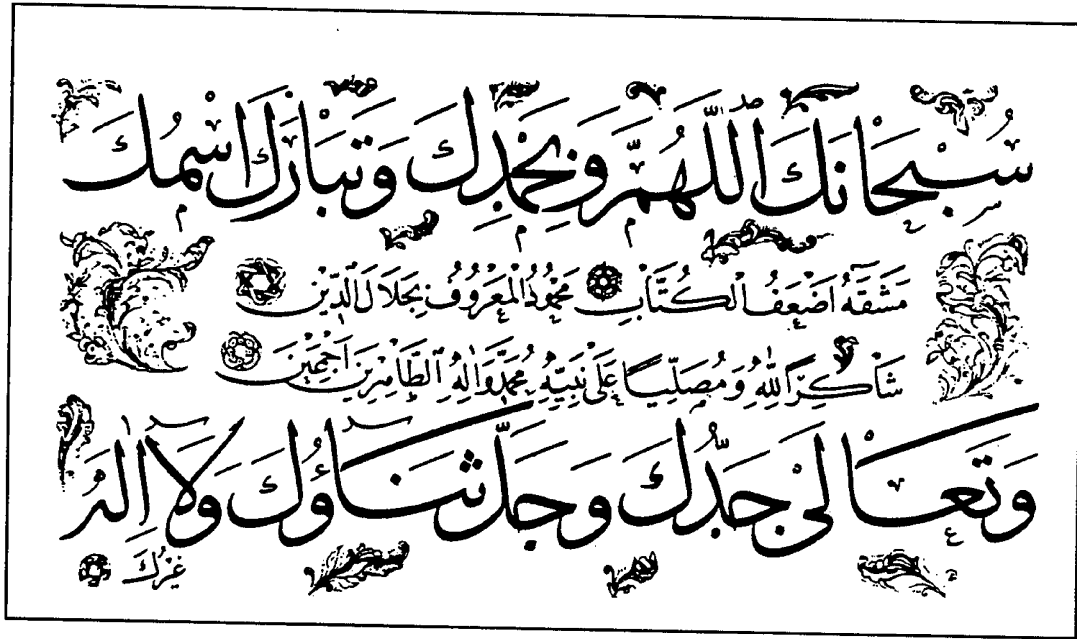 سُبْحَانَكَ اللّٰهُمَّ وَبِحَمْدِكَ وَتَبَارَكَ اسْمُكَ
مَشَقَهُ اَضْعَفُ الْكُتَّابِ مَحْمُودُ الْمَعْرُوفُ بِجَلَالِ الدِّينِ
شَاكِرًا لِلّٰهِ وَمُصَلِّيًا عَلٰى نَبِيِّهِ مُحَمَّدٍ وَاٰلِهِ الطَّاهِرِينَ اَجْمَعِينَ
وَتَعَالٰى جَدُّكَ وَجَلَّ ثَنَاؤُكَ وَلَا اِلٰهَ
غَيْرُكَ